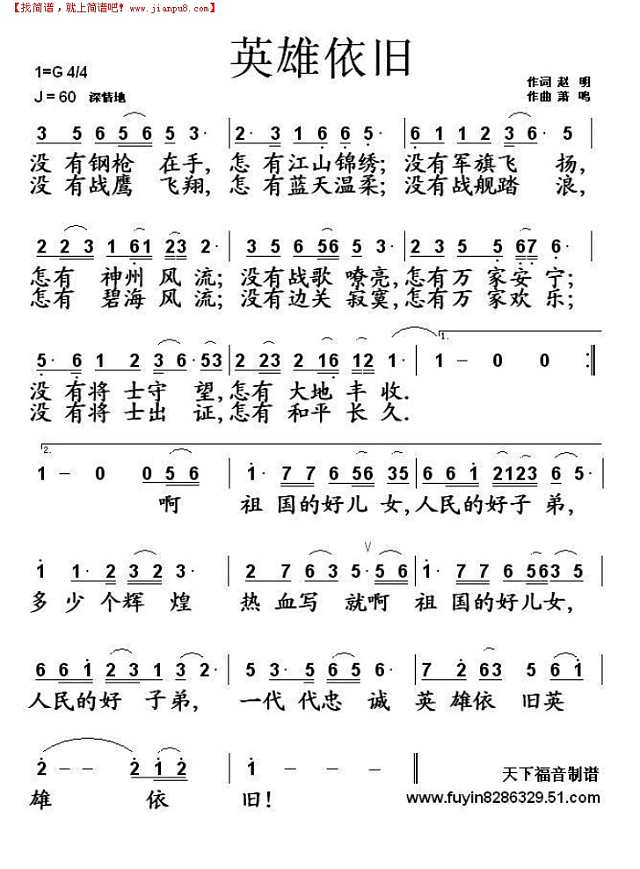 【找简谱，就上简谱吧!www.jianpu8.com】
英雄依旧
1=G 4/4
作词 赵 明
J=60 深情地
作曲 萧 鸣
3 5 6 5 6 5· | 2· 3 5 6 3· | 6 1 1 2 3 6· 5
没 有钢枪 在手, 怎 有江山锦绣; 没有军旗飞 扬,
没 有战鹰 飞翔, 怎 有蓝天温柔; 没有战舰踏 浪,
2 2 3 1 61 23 2· | 3 5 6 56 5 3· | 2 3 5 5 67 6·
怎有 神州 风 流; 没有战歌 嘹亮, 怎有万 家安 宁;
怎有 碧海 风 流; 没有边关 寂寞, 怎有万 家欢 乐;
5· 6 1 2 3 6· 53 | 2 23 2 16 12 1· | 1.
1 – 0 0 :||
没 有将 士守 望, 怎有 大地 丰 收.
没 有将 士出 征, 怎有 和平 长 久.
2.
1 – 0 0 5 6 | 1· 7 7 6 56 35 | 6 6 1 2123 6 5·
啊 祖 国的好儿 女, 人民的好子 弟,
1 1· 2 3 2 3· | 2 7 6 3 5· 5 6 | 1 7 7 6 563 5
多 少个辉 煌 热 血写 就啊 祖 国的好儿女,
6 6 1 2 3 1 5 6· | 3 3· 5 6 5 6 | 7 2 63 5 6 1
人民的好 子弟, 一代 代忠 诚 英 雄依 旧英
2 – 2· 1 2 | 1 – – – ||
天下福音制谱
雄 依 旧!
www.fuyin8286329.51.com